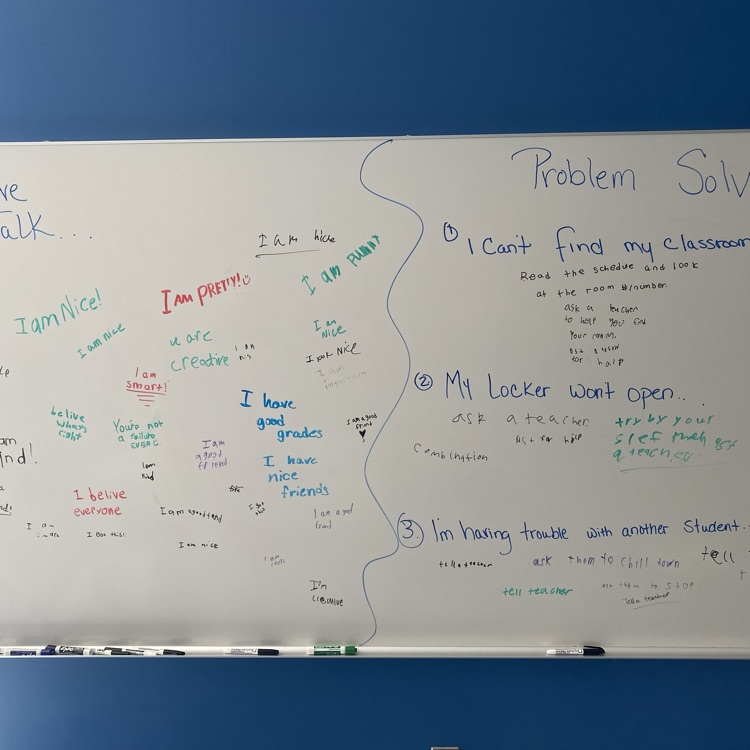 alk...
I am nice
I am PRETTY!
I am FUNNY
I am Nice!
I am nice
u are
creative
I am
Nice
I look Nice
I am
I am
smart!
I have
good
grades
belive
whats
right
You're not
a failure
EVER!
I am a good
friend
I am
a good
friend
I am
kind
I have
nice
friends
I belive
everyone
I am
I Got this!
I am nice
I am a good
friend
I am
I'm
creative
Problem Solv
① I Can't find my classroom
Read the schedule and look
at the room #/number.
ask a teacher
to help you find
your room.
for help
② My Locker won't open..
ask a teacher
ask for help
Combination
try by your
slef then get
a teacher
③. I'm having trouble with another student..
tell a teacher
ask them to chill down
tell
tell teacher
ask them to stop
Tell a teacher